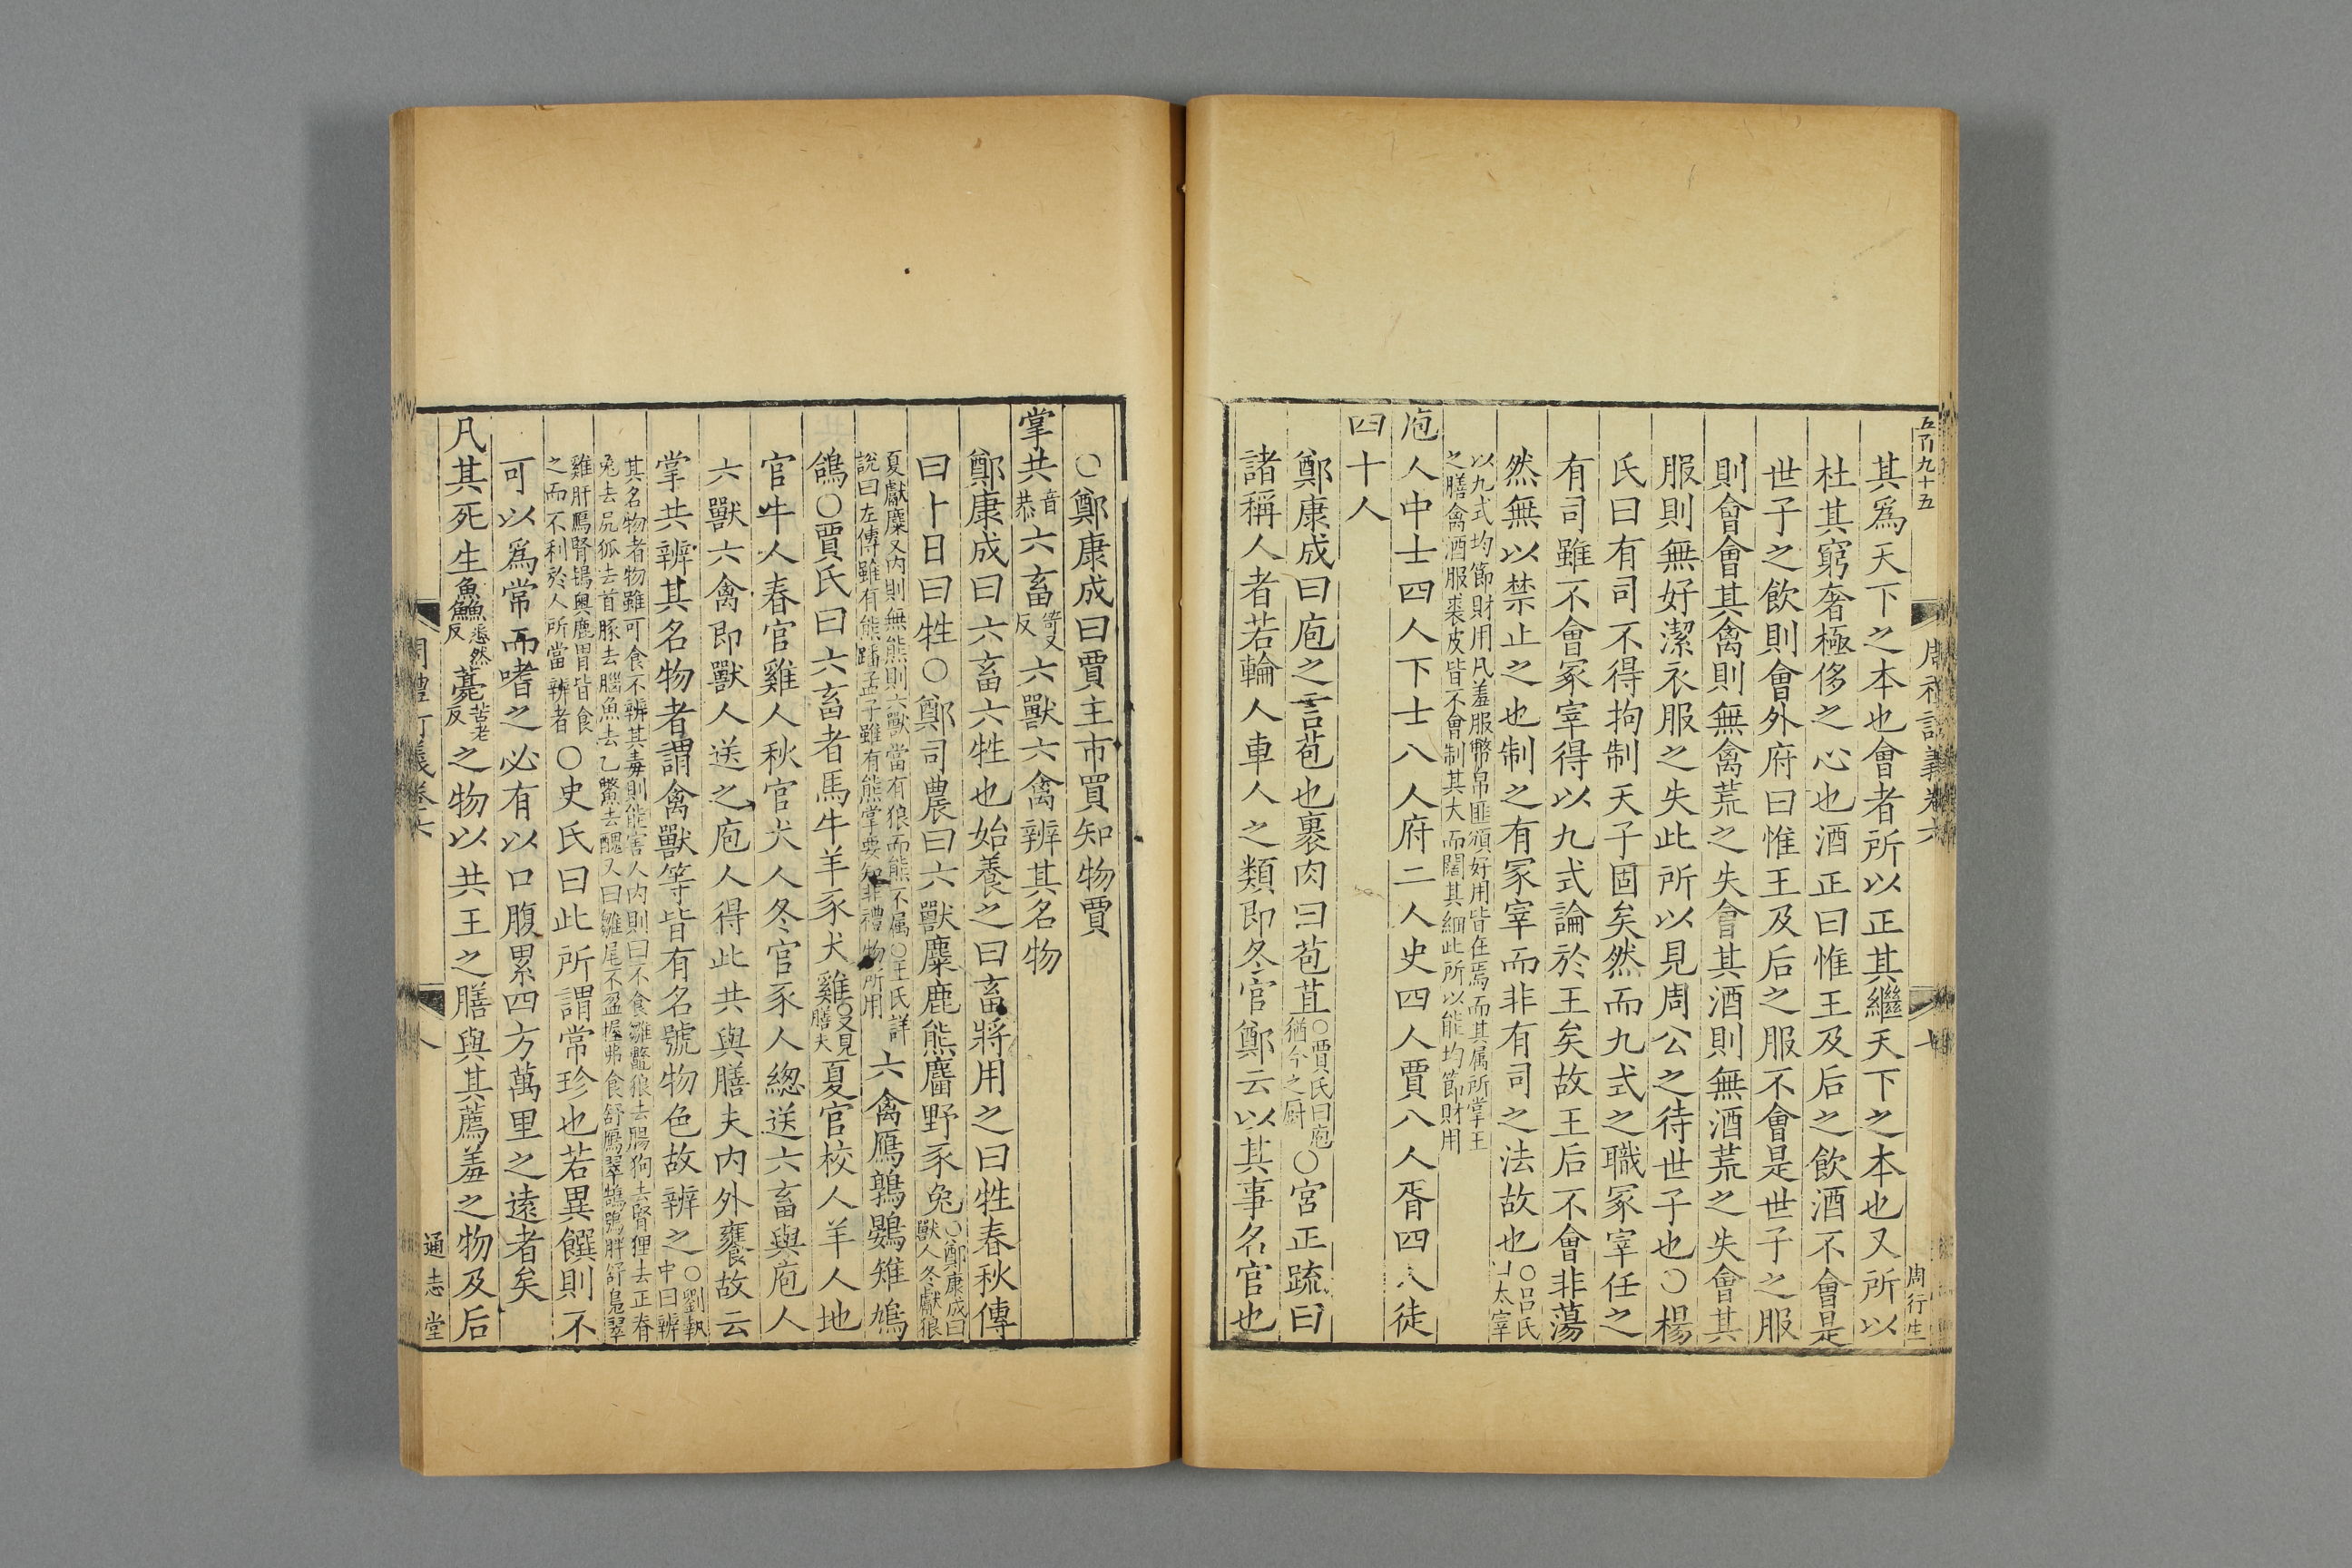 五百九十五
周禮訂義卷六
七
周行生
其爲天下之本也會者所以正其繼天下之本也又所以
杜其窮奢極侈之心也酒正曰惟王及后之飲酒不會是
世子之飲則會外府曰惟王及后之服不會是世子之服
則會會其禽則無禽荒之失會其酒則無酒荒之失會其
服則無好潔衣服之失此所以見周公之待世子也○楊
氏曰有司不得拘制天子固矣然而九式之職冢宰任之
有司雖不會冢宰得以九式論於王矣故王后不會非蕩
然無以禁止之也制之有冢宰而非有司之法故也○呂氏曰太宰
以九式均節財用凡羞服幣帛匪頒好用皆在焉而其属所掌王
之膳禽酒服裘皮皆不會制其大而闊其細此所以能均節財用
庖人中士四人下士八人府二人史四人賈八人胥四人徒
四十人
鄭康成曰庖之言苞也裹肉曰苞苴○賈氏曰庖猶今之厨○宮正疏曰
諸稱人者若輪人車人之類即冬官鄭云以其事名官也
○鄭康成曰賈主市買知物賈
掌共音恭六畜許又反六獸六禽辨其名物
鄭康成曰六畜六牲也始養之曰畜將用之曰牲春秋傳
曰卜日曰牲○鄭司農曰六獸麋鹿熊麕野豕兔○鄭康成曰獸人冬獻狼
夏獻麋又内則無熊則六獸當有狼而熊不属○王氏詳
說曰左傳雖有熊蹯孟子雖有熊掌要知非禮物所用六禽鴈鶉鷃雉鳩
鴿○賈氏曰六畜者馬牛羊豕犬雞○又見膳夫夏官校人羊人地
官牛人春官雞人秋官犬人冬官豕人緫送六畜與庖人
六獸六禽即獸人送之庖人得此共與膳夫内外饔故云
掌共辨其名物者謂禽獸等皆有名號物色故辨之○劉執中曰辨
其名物者物雖可食不辨其毒則能害人内則曰不食雛鼈狼去腸狗去腎狸去正脊
兔去尻狐去首豚去腦魚去乙鼈去醜又曰雛尾不盈握弗食舒鴈翠鵠鴞胖舒鳧翠
雞肝鴈腎鴇奥鹿胃皆食
之而不利於人所當辨者○史氏曰此所謂常珍也若異饌則不
可以爲常而嗜之必有以口腹累四方萬里之遠者矣
凡其死生鱻悉然反薧苦老反之物以共王之膳與其薦羞之物及后
周禮訂義卷六
八
通志堂